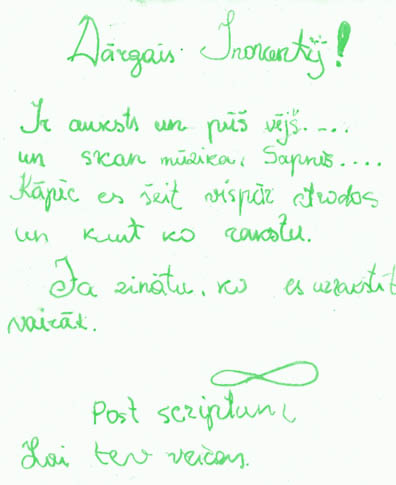 Dārgais Inokentij!
Ir auksts un pūš vējš....
un skan mūzika, Sapnis....
Kāpēc es šeit vispār atrodos
un kaut ko rakstu.
Ja zinātu, ko es uzrakstīt
vairāk.
Post scriptum,
Lai tev veicas.